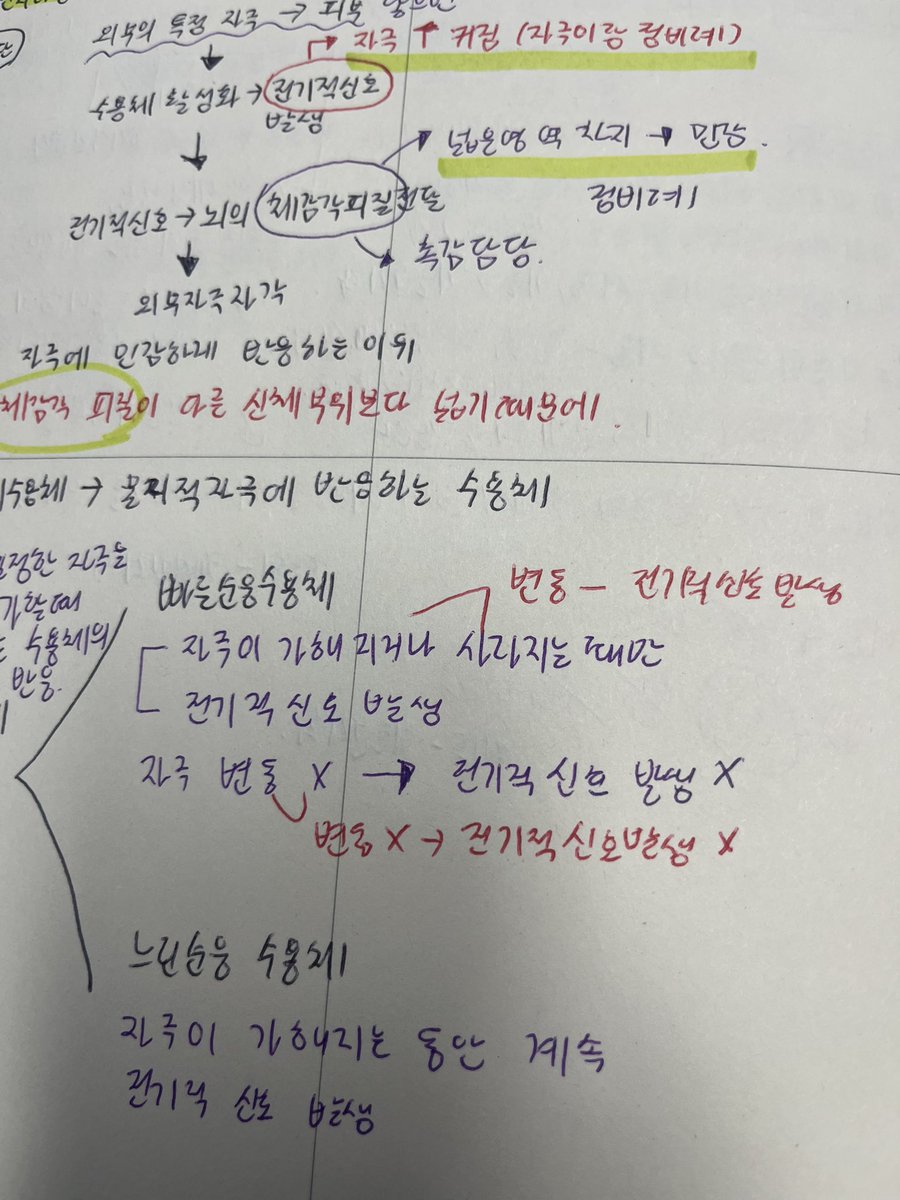 외부의 특정 자극 → 피부 닿으면
자극 ↑ 커짐 (자극이랑 정비례)
수용체 활성화 → 전기적신호
발생
넓은영역 차지 → 민감.
정비례
전기적신호 → 뇌의 체감각피질 전달
촉감담당.
외부자극자각
자극에 민감하게 반응하는 이유
체감각 피질이 다른 신체부위보다 넓기때문에.
수용체 → 물리적자극에 반응하는 수용체
한 자극을
가할때
수용체의
반응.
빠른순응수용체
변동 – 전기적신호발생
자극이 가해지거나 사라지는 때만
전기적신호 발생
자극 변동 X → 전기적신호 발생 X
변동 X → 전기적신호발생 X
느린순응 수용체
자극이 가해지는 동안 계속
전기적 신호 발생